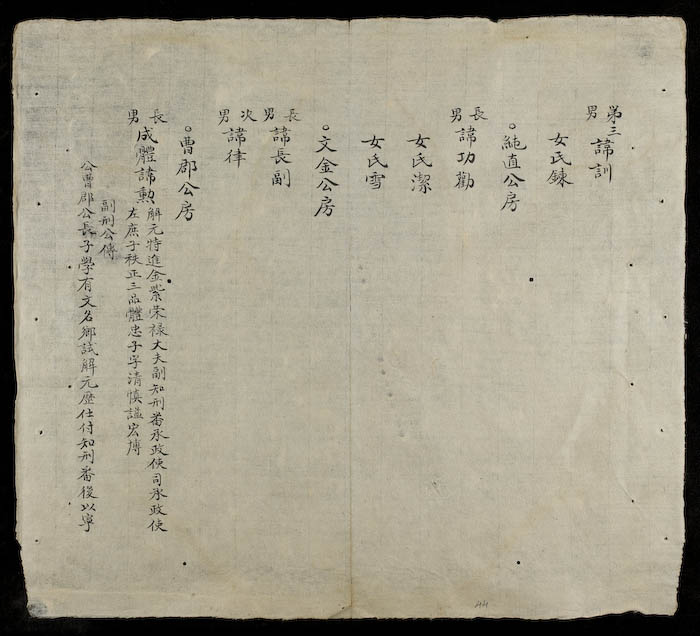 第三男諱訓
女氏鍊
○純直公房
長男諱功勸
女氏潔
女氏雪
○文金公房
長男諱長副
次男諱律
○曹郡公房
長男成體諱勲解元特進金紫榮祿大夫副知刑番承政使司承政使
左庶子秩正三品體忠子字清慎謚宏博
副刑公傳
公曹郡公長子學有文名鄉試解元歷仕付知刑番後以寧
44